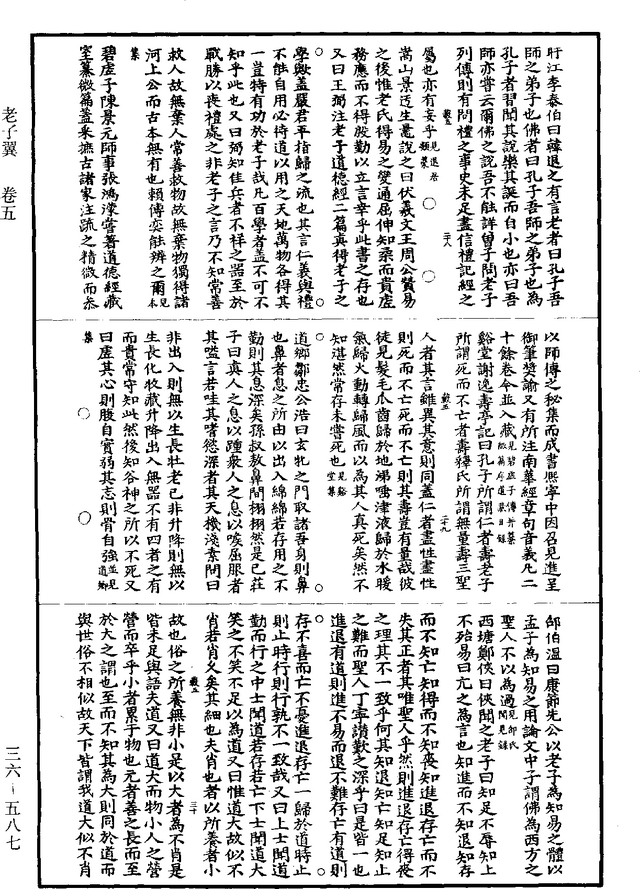 盱江李泰伯曰韓退之有言老者曰孔子吾
師之弟子也佛者曰孔子吾師之弟子也為
孔子者習聞其說樂其誕而自小也亦曰吾
師亦嘗云爾佛之說吾不能詳曾子問老子
列傳則有問禮之事史未足盡信禮記經之
屬也亦有妄乎見退居類藁
嵩山景迂生鼂說之曰伏羲文王周公贊易
之後惟老氏得易之變通屈伸知柔而貴虛
務應而不得殷勤以立言幸乎此書之存也
又曰王弼注老子道德經二篇真得老子之
學歟蓋嚴君平指歸之流也其言仁義與禮
不能自用必待道以用之天地萬物各得其
一豈特有功於老子哉凡百學者蓋不可不
知乎此也又曰弼知佳兵者不祥之器至於
戰勝以喪禮處之非老子之言乃不知常善
救人故無棄人常善救物故無棄物獨得諸
河上公而古本無有也賴傅奕能辨之爾見本集
碧虛子陳景元師事張鴻濛嘗著道德經藏
室纂微篇蓋采摭古諸家注疏之精微而參
以師傳之秘集而成書熙寧中因召見進呈
御筆獎諭又有所注南華經章句音義凡二
十餘卷今並入藏
谿堂謝逸壽亭記曰孔子所謂仁者壽老子
所謂死而不亡者壽釋氏所謂無量壽三聖
人者其言雖異其意則同蓋仁者盡性盡性
則死而不亡死而不亡則其壽豈有量哉彼
徒見髮毛爪齒歸於地涕唾津液歸於水暖
氣歸火動轉歸風而以為其人真死矣然不
知湛然常存未嘗死也見谿堂集
道鄉鄒忠公浩曰玄牝之門取諸吾身則鼻
也鼻者息之所由以出入綿綿若存用之不
勤則其息深矣孫叔敖鼻間栩栩然是已莊
子曰真人之息以踵衆人之息以喉屈服者
其嗌言若哇其嗜慾深者其天機淺素問曰
非出入則無以生長壯老已非升降則無以
生長化收藏升降出入無器不有四者之有
而貴常守知此然後知谷神之所以不死又
曰虛其心則腹自實弱其志則骨自強並見道鄉集
邵伯溫曰康節先公以老子為知易之體以
孟子為知易之用論文中子謂佛為西方之
聖人不以為過見邵氏聞見錄
西塘鄭俠曰俠聞之老子曰知足不辱知止
不殆易曰亢之為言也知進而不知退知存
而不知亡知得而不知喪知進退存亡而不
失其正者其唯聖人乎然則進退存亡得喪
之理其不一致乎何其知退知亡知足知止
之難而聖人丁寧讚歎之深乎曰是皆一也
進退有道則進不易而退不難存亡有道則
存不喜而亡不憂進退存亡一歸於道時止
則止時行則行孰不一致哉又曰上士聞道
勤而行之中士聞道若存若亡下士聞道大
笑之不笑不足以為道又曰惟道大故似不
肖若肖久矣其細也夫肖也者以所養者小
故也俗之所養無非小是以大者為不肖是
皆未足與語夫道又曰道大而物小人之營
營而卒乎小者累于物也元者善之長而至
於大之謂也至而不知其為大則同於道而
與世俗不相似故天下皆謂我道大似不肖
老子翼 卷五
三六－五八七